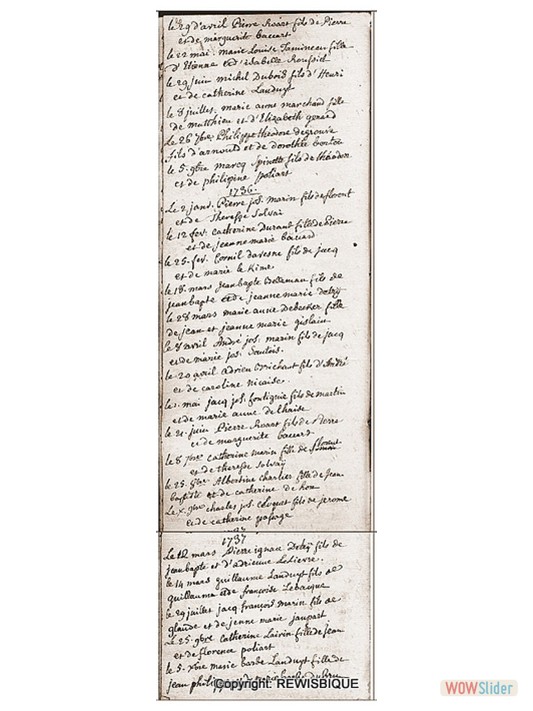 le 29 d'avril Pierre Roart fils de Pierre
et de marguerite baccart
le 22 mai. marie Louise Tamineau fille
d'Etienne et d'isabelle Roussel
le 29 juin michel Dubois fils d'Henri
et de catherine Landuyt
le 8 juillet. marie anne marchand fille
de matthieu et d'Elizabeth
Le 26 7bre. Philippe theodore
fils d'arnould et de dorothée
le 5. 9bre marcq Spinette fils de théodore
et de philipine poliart
1736.
Le 2 janv. Pierre jos. marin fils de florent
et de Theresse Solvai
le 12 fev. catherine durant fille de Pierre
et de jeanne marie baccard
le 25. fev. Cornil davesne fils de jacq
et de marie le Kime
le 18. mars jean bapte fils de
jean bapte et de jeanne marie
le 28 mars marie anne debecker fille
de jean et jeanne marie gislain
le 8 avril André jos. marin fils de jacq
et de marie jos.
le 20 avril adrien fils d'André
et de caroline nicaise.
le . mai jacq jos. fontignie fils de martin
et de marie anne delhaise
le 21. juin Pierre Roart fils de Pierre
et de marguerite baccart
le 8 catherine marin fille de florent
et de theresse Solvaÿ
le 25. 8bre Albertine charlier fille de jean
baptiste et de catherine de hon
Le charles jos. fils de jerome
et de catherine
1737
Le 12 mars Pierre ignace fils de
jean bapte et d'adrienne Lelievre.
le 14 mars guillaume Landuyt fils de
guillaume et de francoise Lebacque
le 29 juillet jacq françois marin fils de
glaude et de jenne marie jaupart
Le 25. 9bre catherine Lairin fille de jean
et de florence poliart
le 5. Xbre marie barbe Landuyt fille de
jean philippe
Copyright: REWISBIQUE
WOWSlider